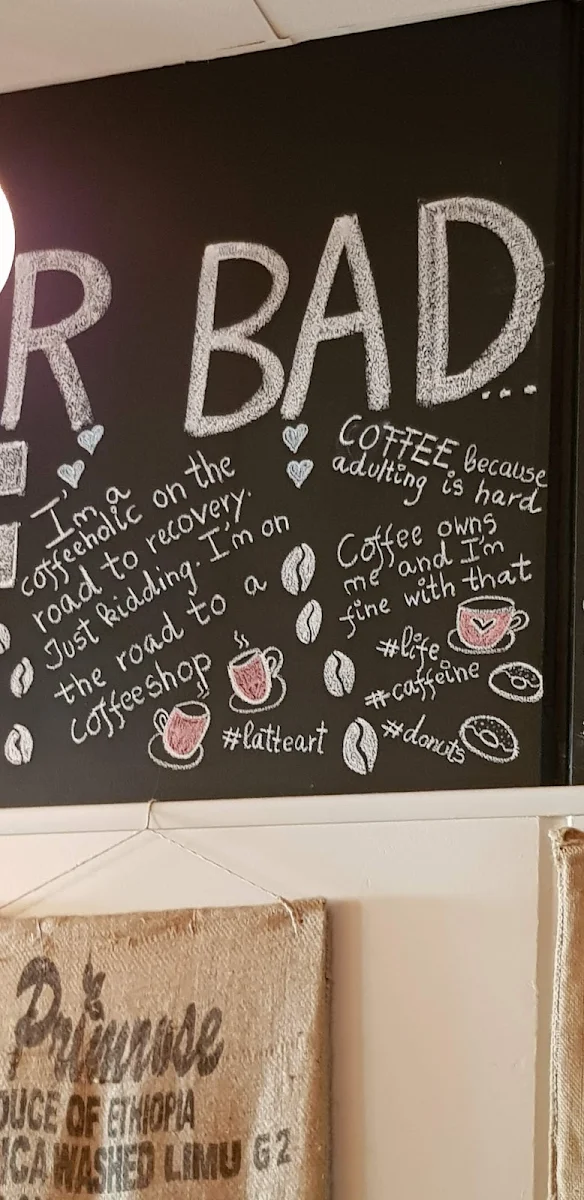 R BAD...
I'm a
coffeeholic on the
road to recovery.
Just kidding. I'm on
the road to a
coffeeshop
#latteart
COFFEE because
adulting is hard
Coffee owns
me and I'm
fine with that
#life
#caffeine
#donuts
Primrose
DUCE OF ETHIOPIA
ICA WASHED LIMU G2